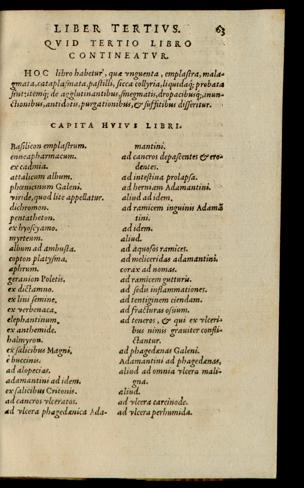 LIBER TERTIVS. 63
QVID TERTIO LIBRO
CONTINEATVR.
HOC libro habetur, quæ vnguenta, emplastra, mala-
gmata, cataplasmata, pastilli, sicca collyria, liquidaq; probata
sint: itemq; de agglutinantibus, smegmatis, dropacibusq;, inun-
ctionibus, antidotis, purgationibus, & suffitibus disseritur.
CAPITA HVIVS LIBRI.
Basilicon emplastrum.
enneapharmacum.
ex cadmia.
attalicum album.
phœnicinum Galeni.
viride, quod lite appellatur.
dichromon.
pentatheton.
ex hyoscyamo.
myrteum.
album ad ambusta.
copton platysma.
aphrum.
geranion Poletis.
ex dictamno.
ex lini semine.
ex verbenaca.
elephantinum.
ex anthemide.
halmyron.
ex salicibus Magni.
è buccinis.
ad alopecias.
adamantini ad idem.
ex salicibus Critonis.
ad cancros vlceratos.
ad vlcera phagedænica Ada-
mantini.
ad cancros depascentes & ero-
dentes.
ad intestina prolapsa.
ad herniam Adamantini.
aliud ad idem.
ad ramicem inguinis Adamā
tini.
ad idem.
aliud.
ad aquosos ramices.
ad meliceridas adamantini.
corax ad nomas.
ad ramicem gutturis.
ad sedis inflammationes.
ad tentiginem ciendam.
ad fracturas ossium.
ad teneros, & qui ex vlceri-
bus nimis grauiter confli-
ctantur.
ad phagedænas Galeni.
Adamantini ad phagedænas,
aliud ad omnia vlcera mali-
gna.
aliud.
ad vlcera carcinode.
ad vlcera perhumida.